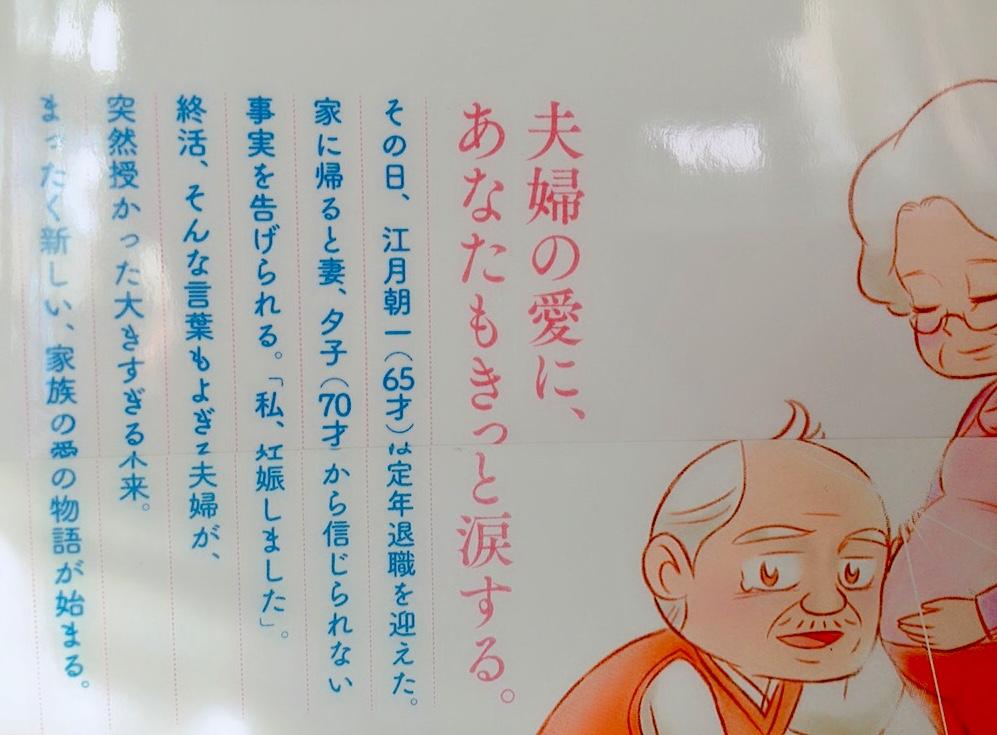 夫婦の愛に、
あなたもきっと涙する。
その日、江月朝一（65才）は定年退職を迎えた。
家に帰ると妻、夕子（70才）から信じられない
事実を告げられる。「私、妊娠しました」。
終活、そんな言葉もよぎる夫婦が、
突然授かった大きすぎる未来。
まったく新しい、家族の愛の物語が始まる。